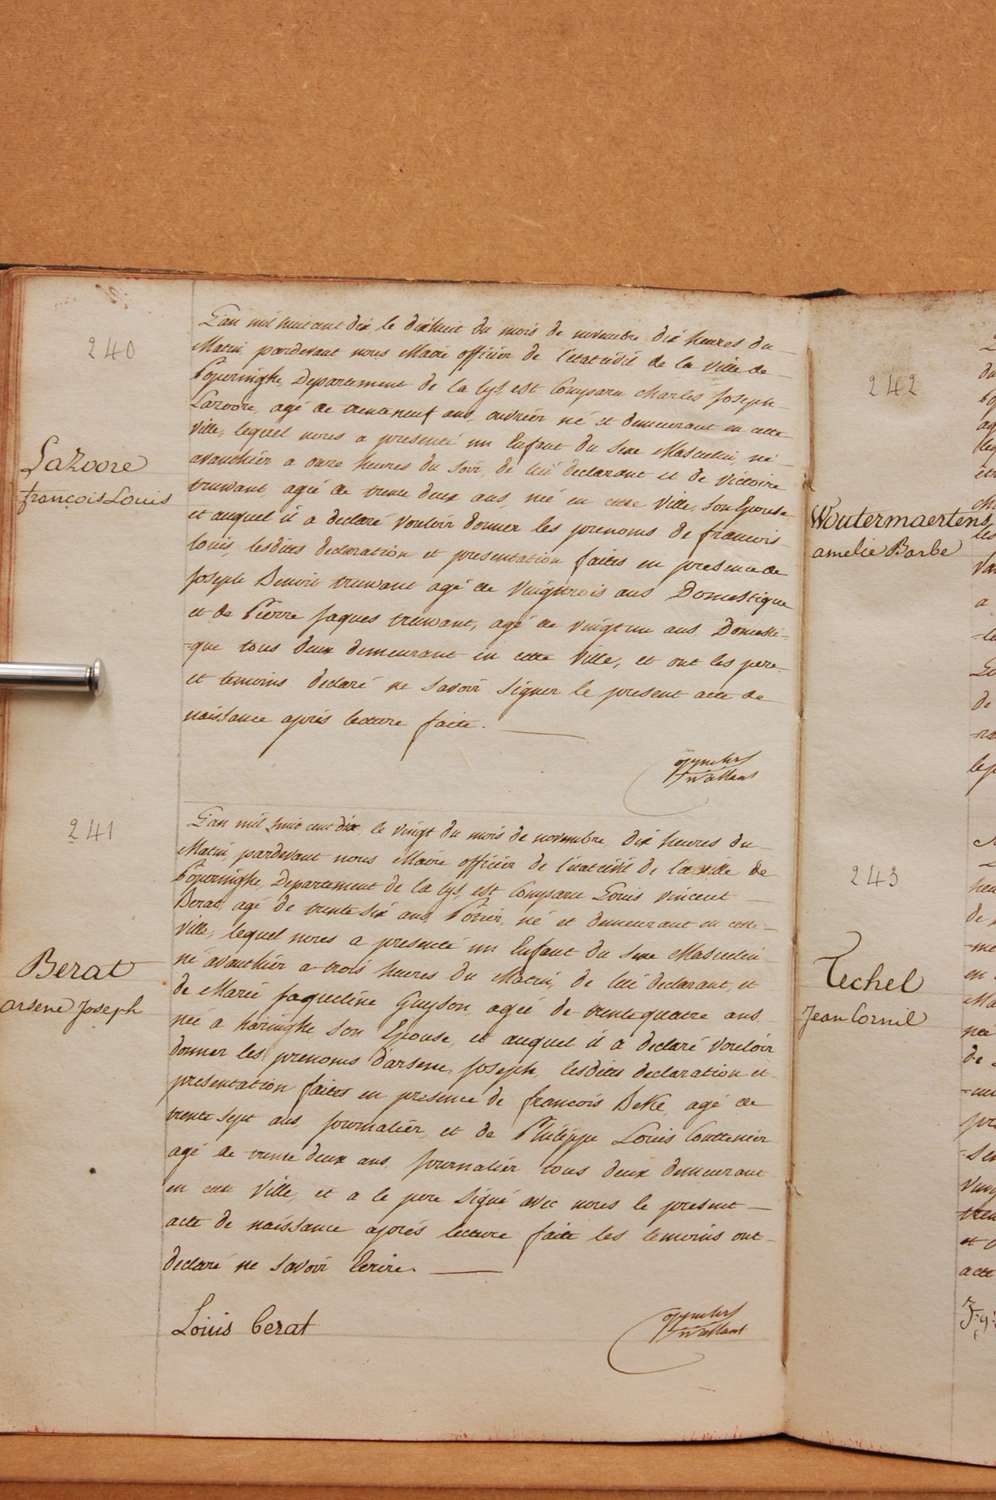 240
LaZoore
françois Louis
L'an mil huit cent dix le dixhuit du mois de novembre dix heures du
Matin, pardevant nous Maire officier de l'état civil de la ville de
Poperinghe, Departement de la Lys, est Comparu charles Joseph
Lazoore, agé de trenteneuf ans, ouvrier né et demeurant en cette
ville, lequel nous a presenté un Enfant du sexe Masculin, né
avanthier a onze heures du soir, de lui declarant et de Victoire
truwant agée de trente deux ans, née en cette Ville, son Epouse
et auquel il a declaré vouloir donner les prenoms de francois
Louis, lesdites declaration et presentation faites en presence de
Joseph Benoit truwant agé de Vingttrois ans Domestique
et de Pierre Jaques truwant, agé de vingt un ans Domesti-
-que tous deux demeurant en cette Ville, et ont les pere
et temoins declaré ne savoir signer le present acte de
naissance aprés lecture faite.
241
Berat
arsene Joseph
L'an mil huit cent dix, le vingt du mois de novembre dix heures du
Matin, pardevant nous Maire officier de l'état civil de la ville de
Poperinghe, Departement de la Lys, est Comparu Louis vincent
Berat, agé de trente six ans, Potier, né et demeurant en cette
ville, lequel nous a presenté un Enfant du sexe Masculin
né avanthier a trois heures du Matin, de lui declarant, et
de Marie Jaqueline Guyson, agée de trentequatre ans
née a haringhe, son Epouse, et auquel il a declaré vouloir
donner les prenoms d'arsene Joseph, lesdites declaration et
presentation faites en presence de francois DeKe, agé de
trente sept ans, journalier, et de Philippe Louis Couttenier
agé de trente deux ans, journalier tous deux demeurant
en cette Ville, et a le pere signé avec nous le present
acte de naissance aprés lecture faite les temoins ont
declaré ne savoir Ecrire.
Louis berat
242
Woutermaertens
amelie Barbe
243
Techel
Jean Cornil